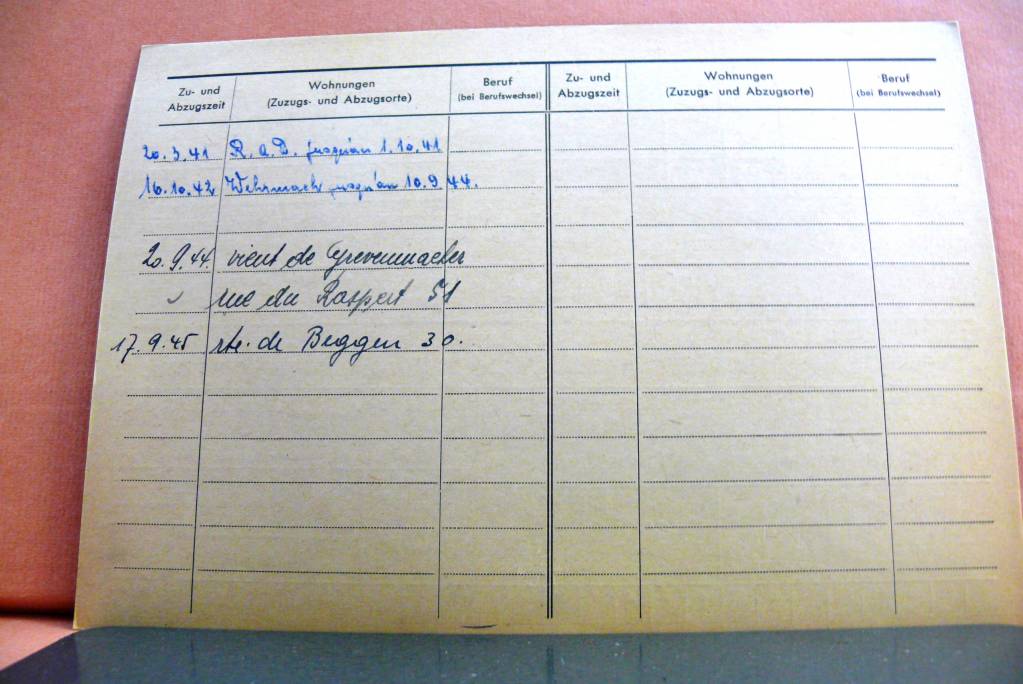 Zu- und Abzugszeit
Wohnungen
(Zuzugs- und Abzugsorte)
Beruf
(bei Berufswechsel)
Zu- und Abzugszeit
Wohnungen
(Zuzugs- und Abzugsorte)
Beruf
(bei Berufswechsel)
20.3.41 R.a.D. jusqu'au 1.10.41
16.10.42 Wehrmacht jusqu'au 10.9.44.
20.9.44. vient de Grevenmacher
rue du Raspert 51
17.9.45 rte. de Beggen 30.